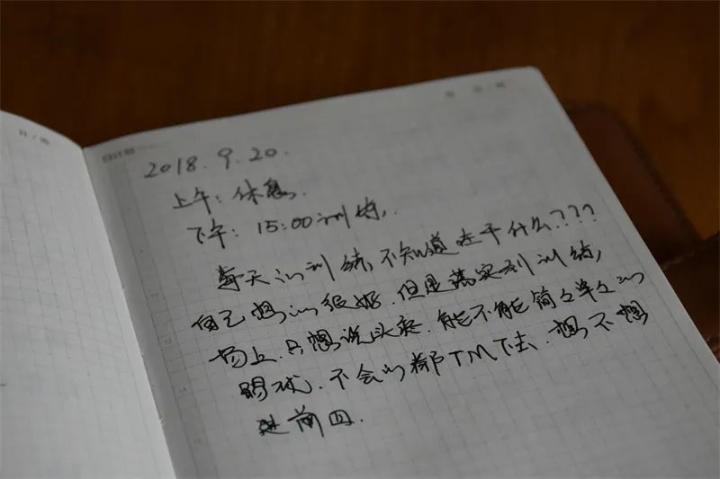 2018.9.20.
上午：休息，
下午：15:00训练，
每天的训练，不知道在干什么???
自己想的很好，但是落实到训练，
场上，只想说头疼，能不能简简单单的
踢球，不会的都TM下去，想不想
进前四.